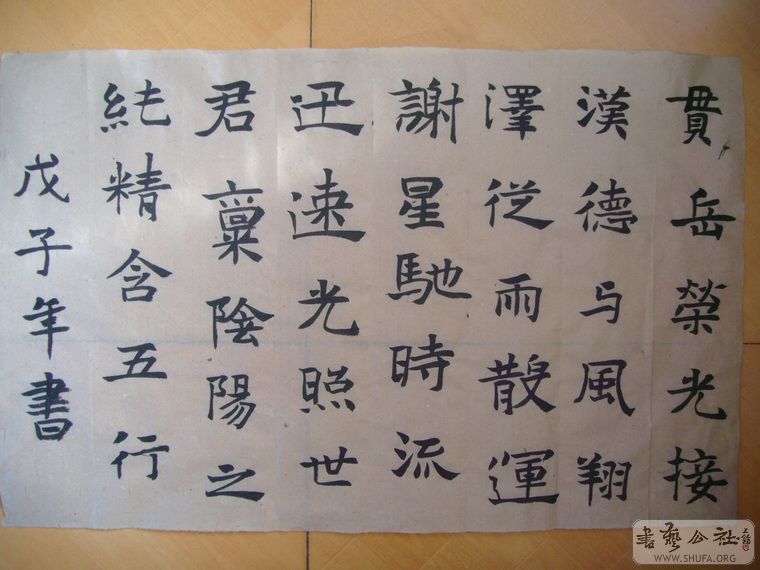 貫岳榮光接
漢德与風翔
澤從雨散運
謝星馳時流
迅速光照世
君稟陰陽之
純精含五行
戊子年書
書藝公社
WWW.SHUFA.ORG